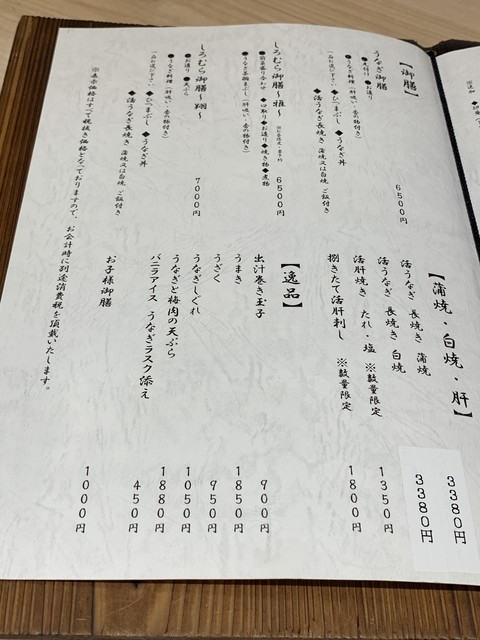 【御膳】
うなぎ御膳 6500円
●先付け ●お造り
●うなぎ料理（肝吸い・香の物付き）
（一品お選び下さい）◆ひつまぶし ◆うなぎ丼
◆活うなぎ長焼き 蒲焼又は白焼 ご飯付き
しろむら御膳～雅～ 6500円
●前菜盛り合わせ ◆口取り ◆お造り ◆焼き物 ◆煮物
●うなぎ茶碗まぶし（肝吸い・香の物付き）
しろむら御膳～翔～ 7000円
●お造り ●天ぷら
●うなぎ料理（肝吸い・香の物付き）
（一品お選び下さい）◆ひつまぶし ◆うなぎ丼
◆活うなぎ長焼き 蒲焼又は白焼 ご飯付き
【蒲焼・白焼・肝】
活うなぎ 長焼き 蒲焼 3380円
活うなぎ 長焼き 白焼 3380円
活肝焼き たれ・塩 ※数量限定 1350円
捌きたて活肝刺し ※数量限定 1800円
【逸品】
出汁巻き玉子 900円
うまき 1850円
うざく 950円
うなぎしぐれ 1050円
うなぎと梅肉の天ぷら 1880円
バニラアイス うなぎラスク添え 450円
お子様御膳 1000円
※表示価格はすべて税抜き価格となっておりますので、お会計時に別途消費税を頂戴いたします。